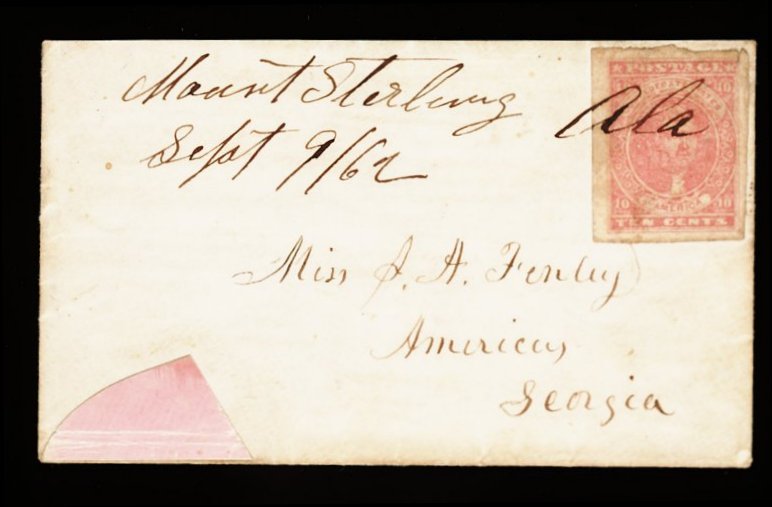 Mount Sterling Ala
Sept 9/62
POSTAGE
10 10
OF AMERICA
10 10
TEN CENTS
Miss J. A. Fenley
Americus
Georgia